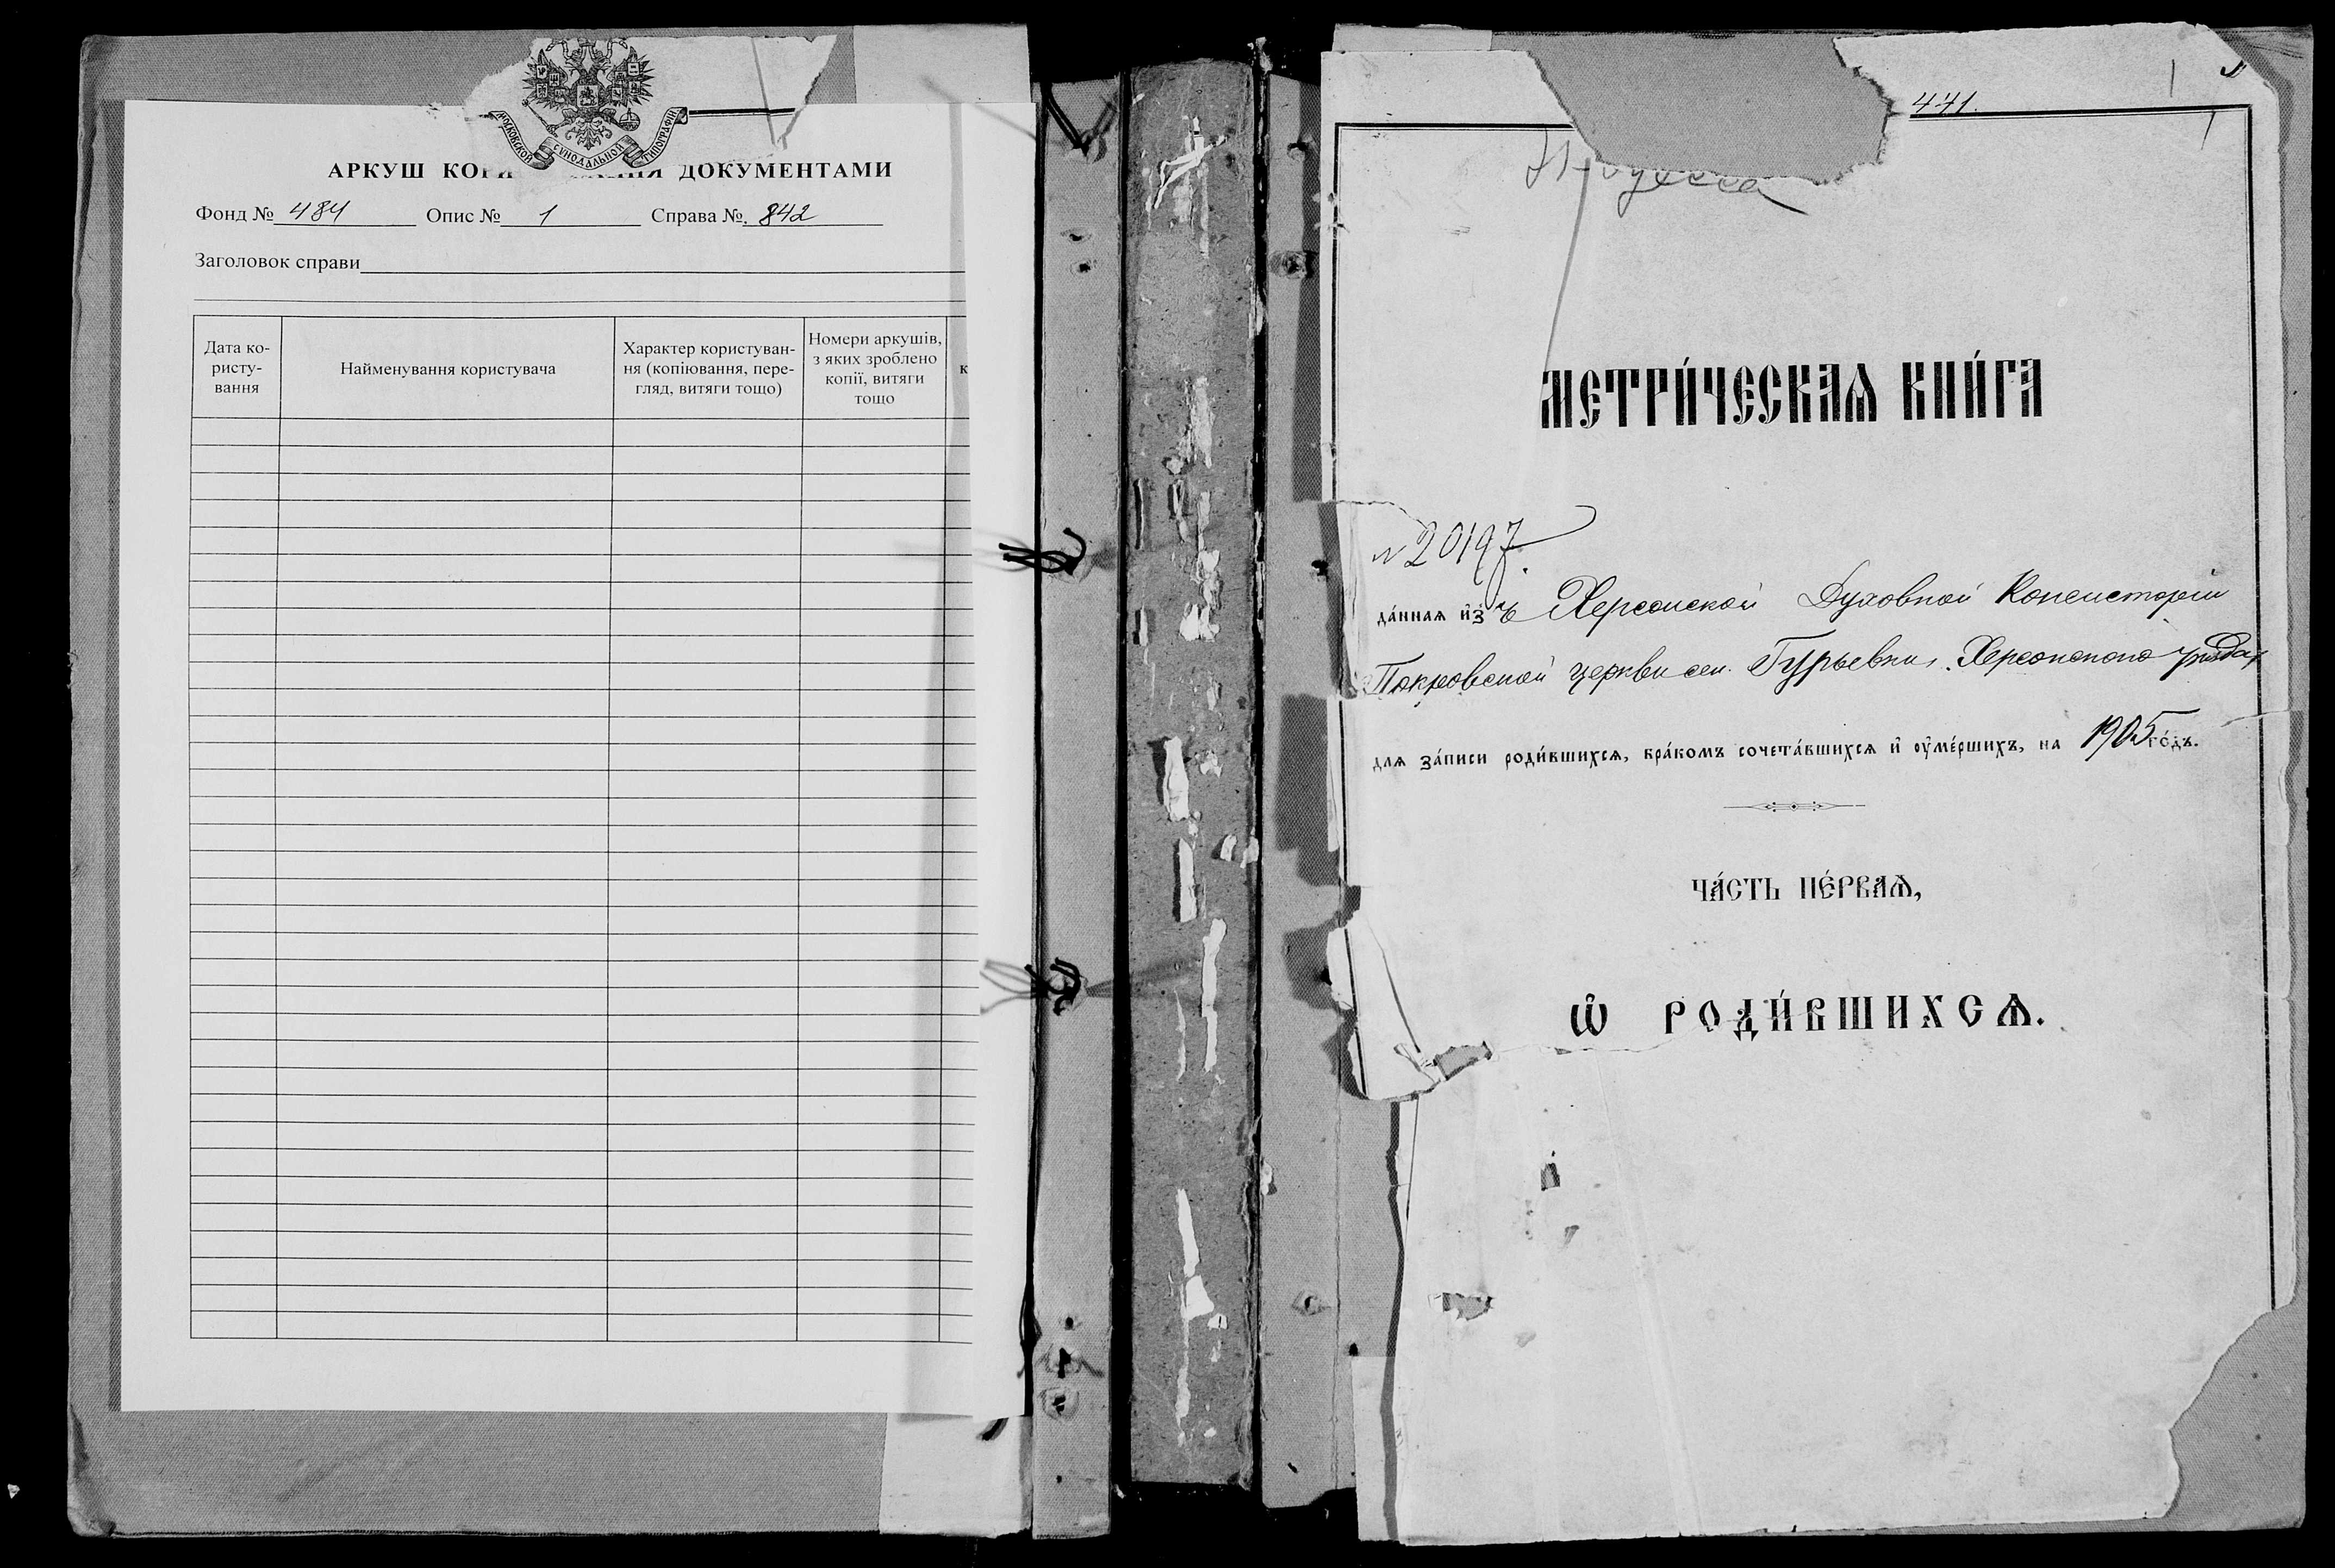 МОСКОВСКОЙ СУНОДАЛЬНОЙ ТИПОГРАФІИ
АРКУШ ДОКУМЕНТАМИ
Фонд № 484 Опис № 1 Справа № 842
Заголовок справи
Дата ко-
ристу-
вання
Найменування користувача
Характер користуван-
ня (копіювання, пере-
гляд, витяги тощо)
Номери аркушів,
з яких зроблено
копії, витяги
тощо
к
441.
МЕТРИ́ЧЕСКАѦ КНИ́ГА
№ 20197.
да́ннаѧ и҆зъ Херсонской Духовной Консисторіи
Покровской церкви сел. Гурьевки, Херсонскаго уѣзда,
длѧ за́писи роди́вшихсѧ, бра́комъ сочета́вшихсѧ и҆ ᲂу҆ме́ршихъ, на 1905 го́дъ.
ЧА́СТЬ ПЕ́РВАѦ,
Ѽ РОДИ́ВШИХСѦ.